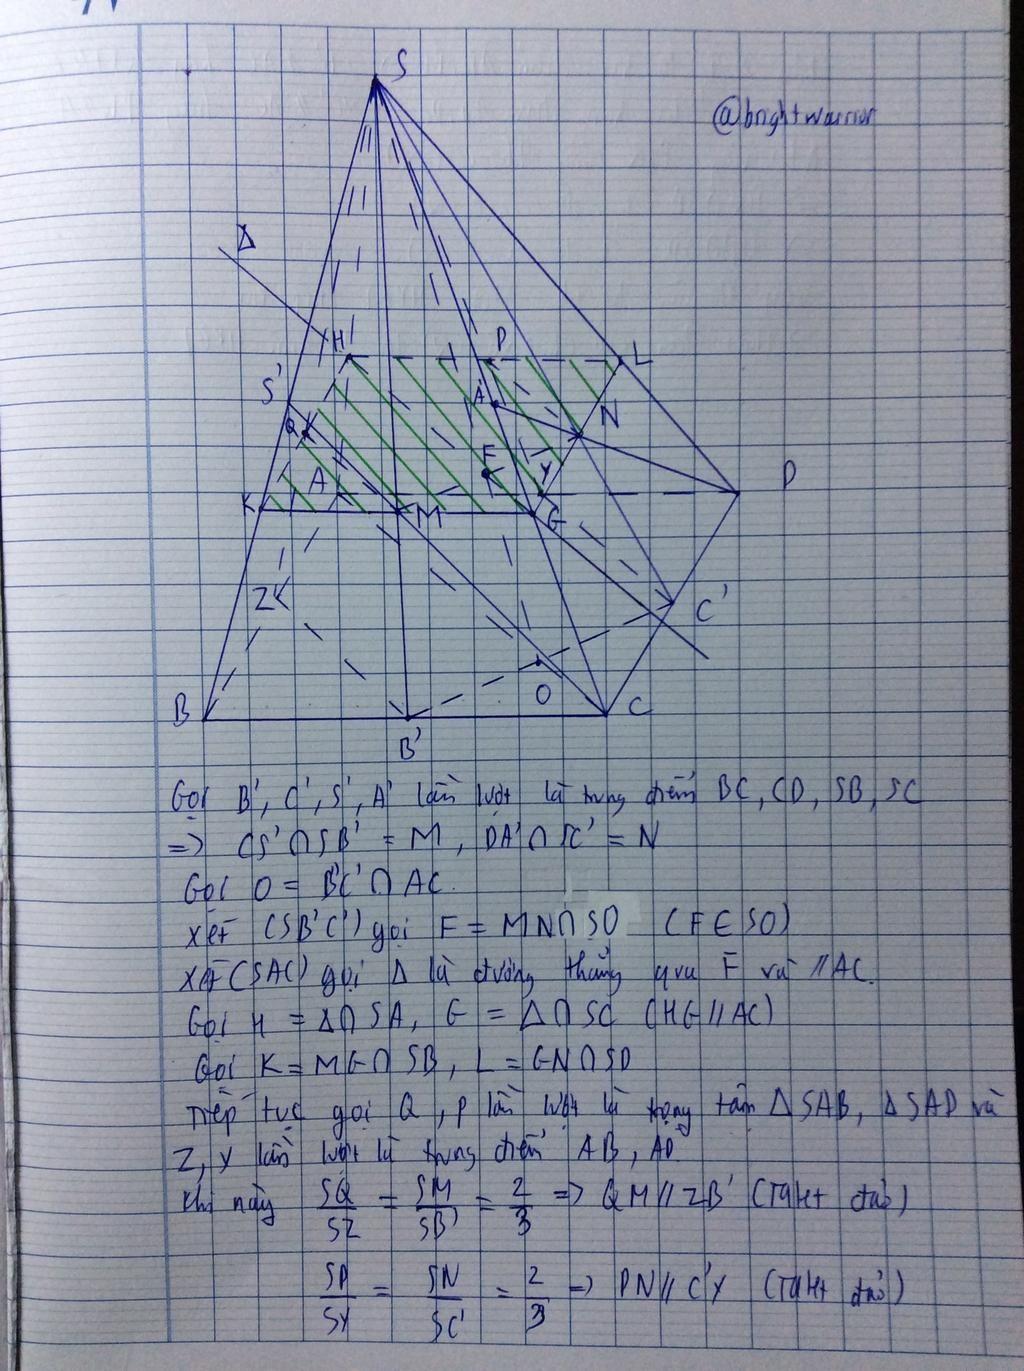 @brightwarrior
S
Δ
H
P
L
S'
A'
N
Q
F
Y
K
A
M
G
D
Z
C'
B
O
C
B'
Gọi B', C', S', A' lần lượt là trung điểm BC, CD, SB, SC
=> CS' ∩ SB' = M, DA' ∩ SC' = N
Gọi O = B'C' ∩ AC.
Xét (SB'C') gọi F = MN ∩ SO (F ∈ SO)
Xét (SAC) gọi Δ là đường thẳng qua F và // AC.
Gọi H = Δ ∩ SA, G = Δ ∩ SC (HG // AC)
Gọi K = MG ∩ SB, L = GN ∩ SD
Tiếp tục gọi Q, P lần lượt là trọng tâm Δ SAB, Δ SAD và
Z, Y lần lượt là trung điểm AB, AD
Khi này SQ/SZ = SM/SB' = 2/3 => QM // ZB' (Talet đảo)
SP/SY = SN/SC' = 2/3 => PN // C'Y (Talet đảo)